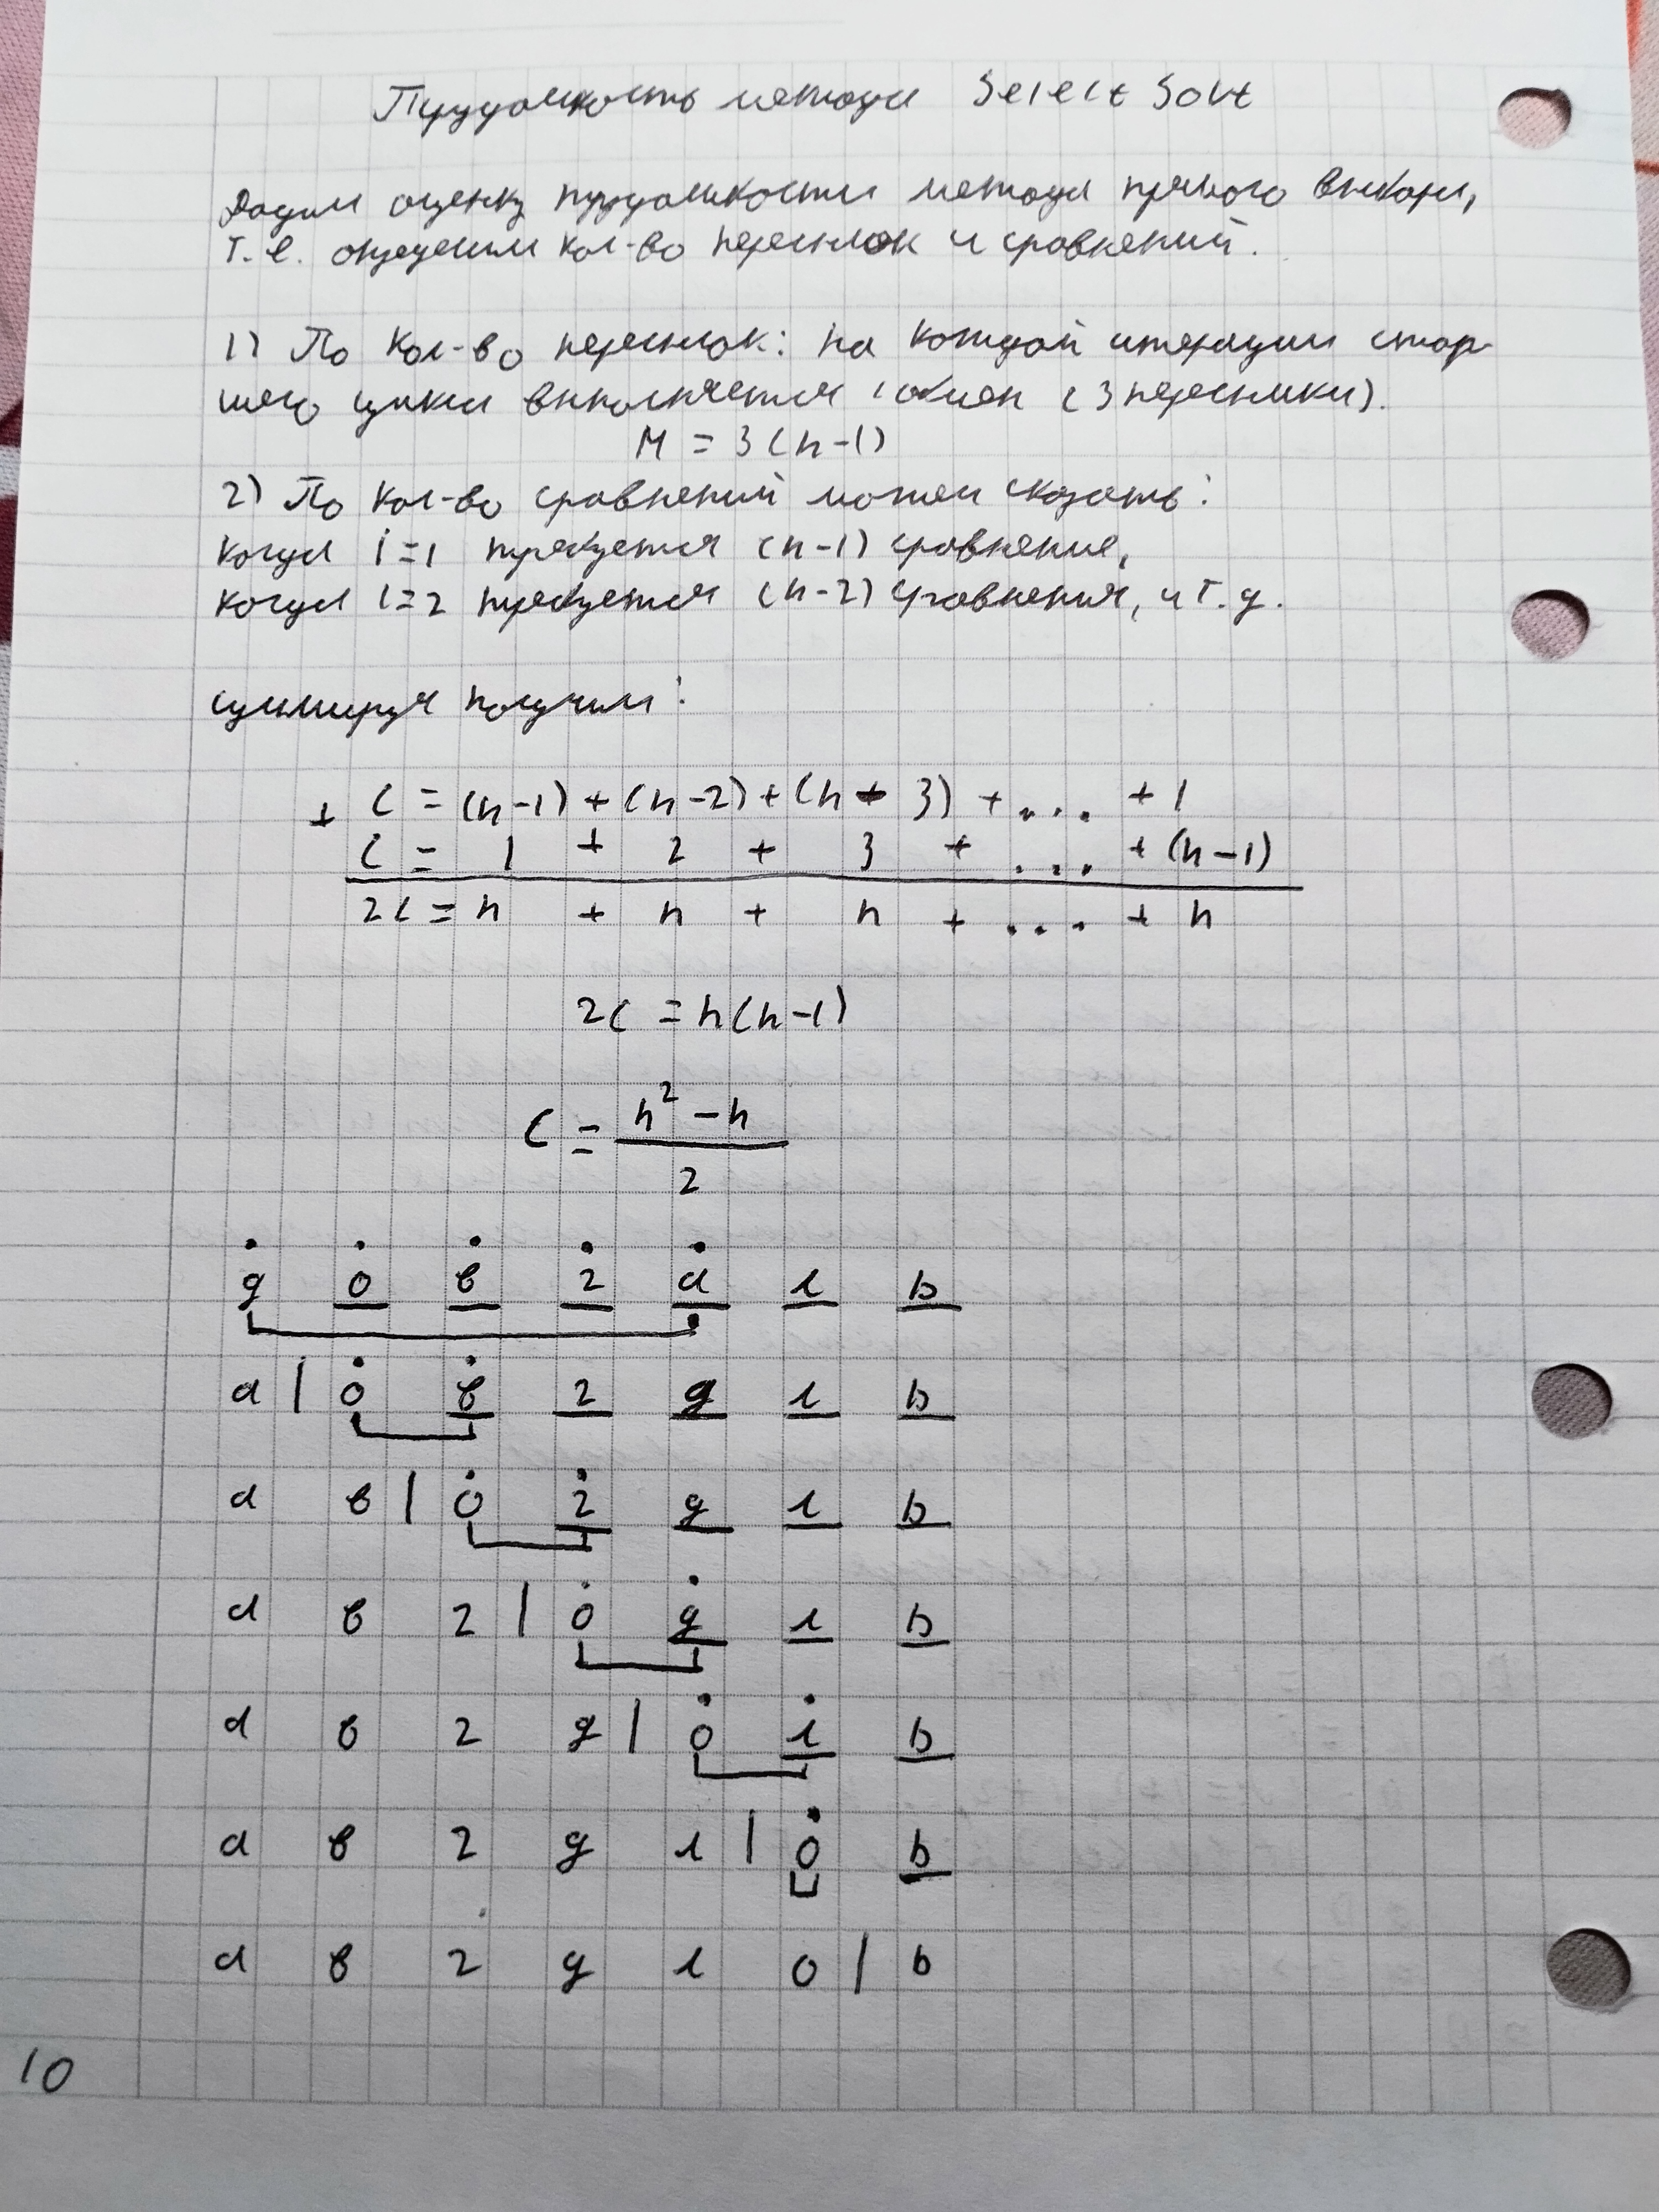 Трудоёмкость метода Select Sort
Дадим оценку трудоёмкости метода прямого выбора,
т.е. определим кол-во пересылок и сравнений.
1) По кол-во пересылок: на каждой итерации стар-
шего цикла выполняется 1 обмен (3 пересылки).
M = 3(n-1)
2) По кол-во сравнений можем сказать:
когда i=1 требуется (n-1) сравнение,
когда i=2 требуется (n-2) сравнения, и т.д.
суммируя получим:
+ C = (n-1) + (n-2) + (n-3) + ... + 1
C = 1 + 2 + 3 + ... + (n-1)
2C = n + n + n + ... + n
2C = n(n-1)
C = (n² - n) / 2
д о в г а л ь
а | о в г д л ь
а в | о г д л ь
а в г | о д л ь
а в г д | о л ь
а в г д л | о ь
а в г д л о | ь
10